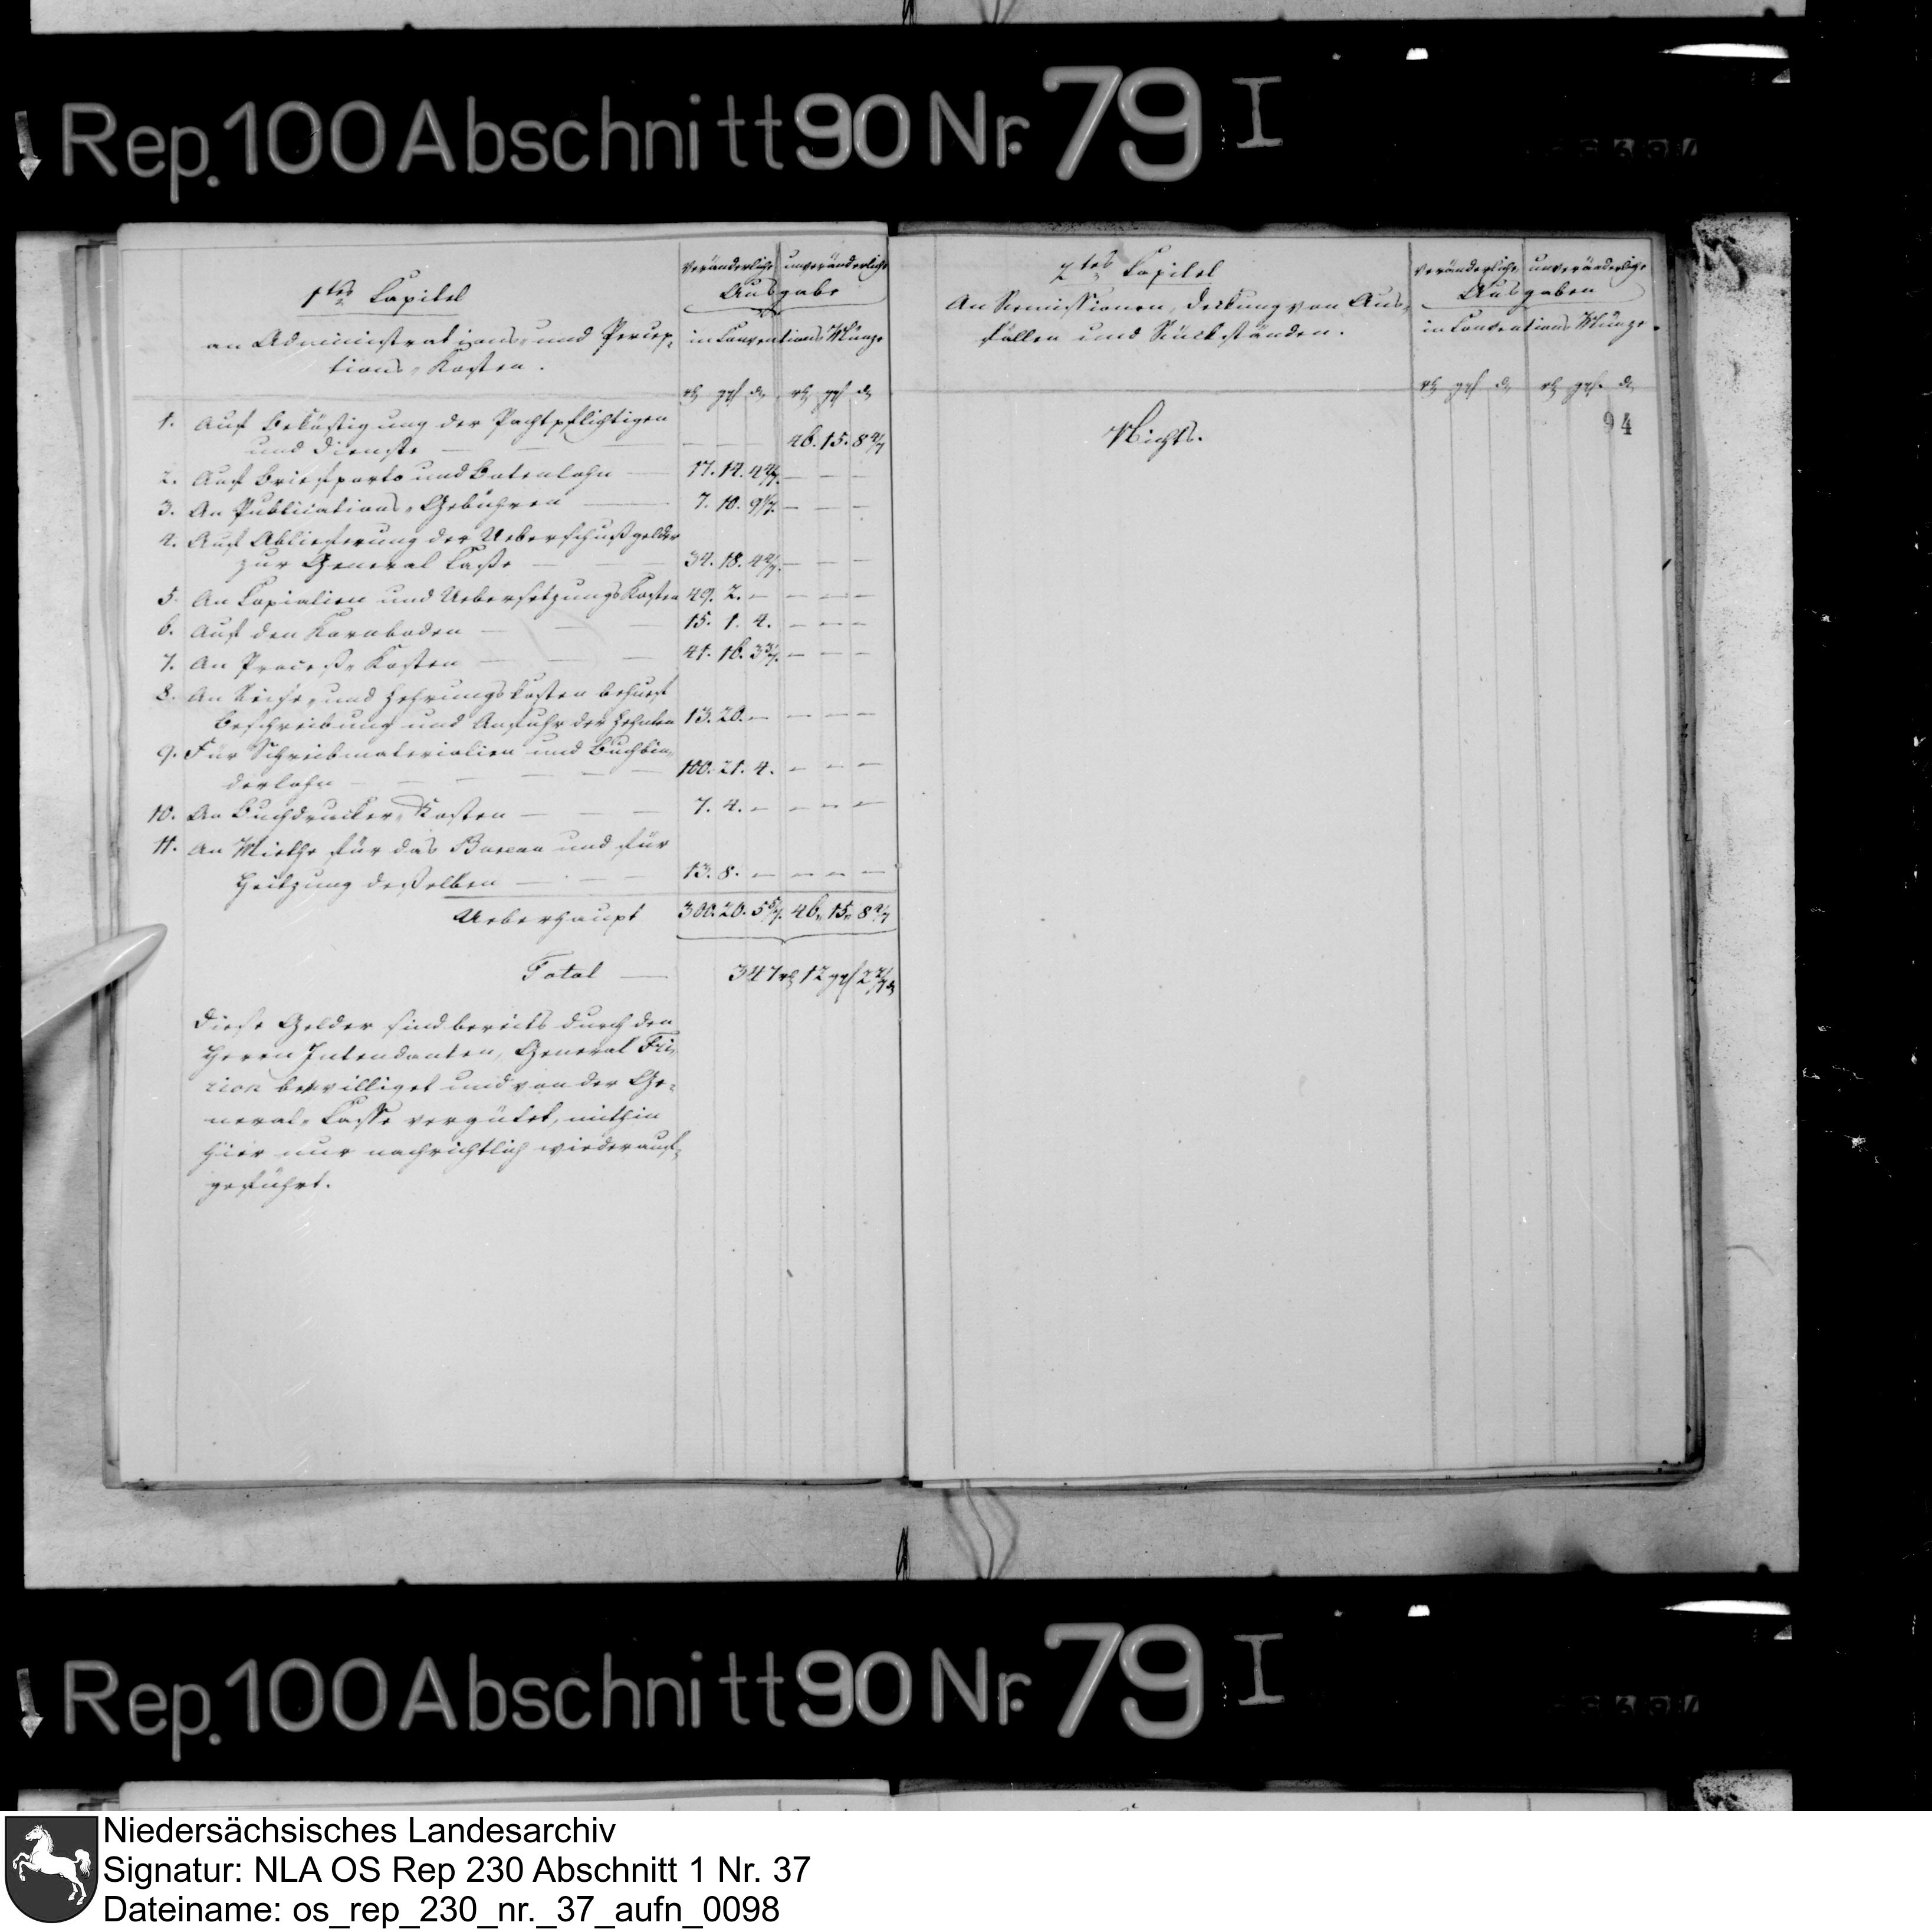 Rep. 100 Abschnitt 90 Nr. 79 I
1tes Capitel
an Administrations- und Percep-
tions-Kosten.
veränderliche unveränderliche
Ausgabe
in Conventions Münze
rt ggl d rt ggl d
1. Auf Beköstigung der Pachtpflichtigen
und Dienste — — — — — 46. 15. 8 4/7
2. Auf Briefporto und Botenlohn — 17. 14. 4 4/7. — — —
3. An Publications-Gebühren — 7. 10. 9 1/7. — — —
4. Auf Ablieferung der Ueberschußgelder
zur General Casse — — — 34. 18. 4 4/7. — — —
5. An Copialien und Uebersetzungs Kosten 49. 2. — — — —
6. Auf den Kornboden — — — 15. 1. 4. — — —
7. An Proceß-Kosten — — — 41. 16. 3 3/7. — — —
8. An Reise- und Zehrungskosten behuef
Beschreibung und Anfuhr der Zehnten 13. 20. — — — —
9. Für Schreibmaterialien und Buchbin-
derlohn — — — — — — 100. 21. 4. — — —
10. An Buchdrucker-Kosten — — — 7. 4. — — — —
11. An Miethe für das Bureau und für
Heitzung deßelben — — — 13. 8. — — — —
Ueberhaupt 300. 20. 5 5/7. 46. 15. 8 4/7
Total — 347 rt 12 ggl 2 2/7 d
Diese Gelder sind bereits durch den
Herrn Intendanten, General Fri-
rion bewilliget und von der Ge-
neral-Casse vergütet, mithin
hier nur nachrichtlich wieder auf-
geführt.
2tes Capitel
An Remissionen, Deckung von Aus-
fällen und Rückständen.
veränderliche unveränderliche
Ausgaben
in Conventions Münze.
rt ggl d rt ggl d
94
Nichts.
Rep. 100 Abschnitt 90 Nr. 79 I
Niedersächsisches Landesarchiv
Signatur: NLA OS Rep 230 Abschnitt 1 Nr. 37
Dateiname: os_rep_230_nr._37_aufn_0098